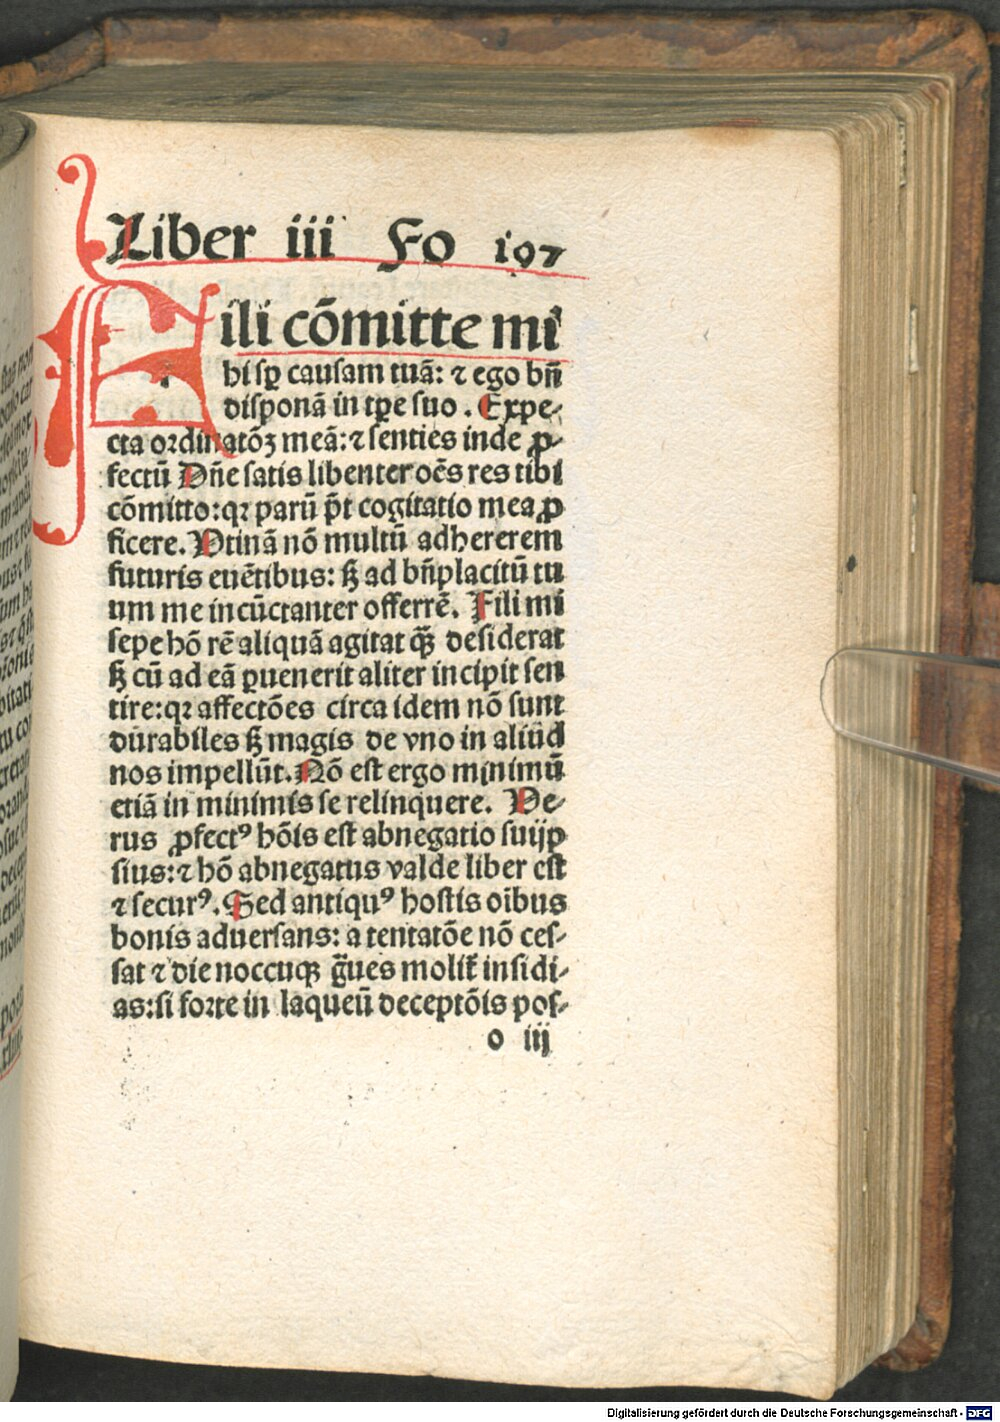 Liber iii Fo 197
Fili cōmitte mi
hi sꝑ causam tuā: ⁊ ego bn̄
disponā in tꝑe suo. Expe-
cta ordinatōꝫ meā: ⁊ senties inde ꝓ-
fectū Dn̄e satis libenter oēs res tibi
cōmitto: qꝛ parū p̄t cogitatio mea ꝓ
ficere. Vtinā nō multū adhererem
futuris euētibus: sꝫ ad bn̄placitū tu
um me incūctanter offerrē. Fili mi
sepe hō rē aliquā agitat quā desiderat
sꝫ cū ad eā ꝑuenerit aliter incipit sen
tire: qꝛ affectōes circa idem nō sunt
durabiles sꝫ magis de vno in aliud
nos impellūt. Nō est ergo minimū
etiā in minimis se relinquere. Ve-
rus ꝓfectꝰ hōis est abnegatio suijp
sius: ⁊ hō abnegatus valde liber est
⁊ securꝰ. Sed antiquꝰ hostis oībus
bonis aduersans: a tentatōe nō ces-
sat ⁊ die noctuqꝫ g̃ues molit̃ insidi-
as: si forte in laqueū deceptōis pos-
o iij
tu cor
Digitalisierung gefördert durch die Deutsche Forschungsgemeinschaft - DFG